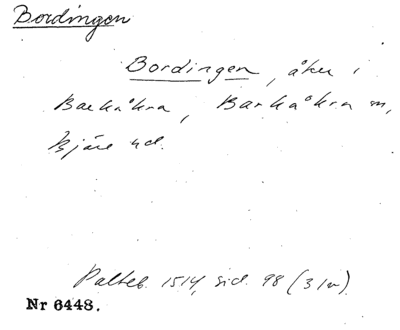 Bordingen
Bordingen, åker i
Barkåkra, Barkåkra sn,
Bjäre hd.
Palteb. 1514, sid. 98 (3 lv).
Nr 6448.